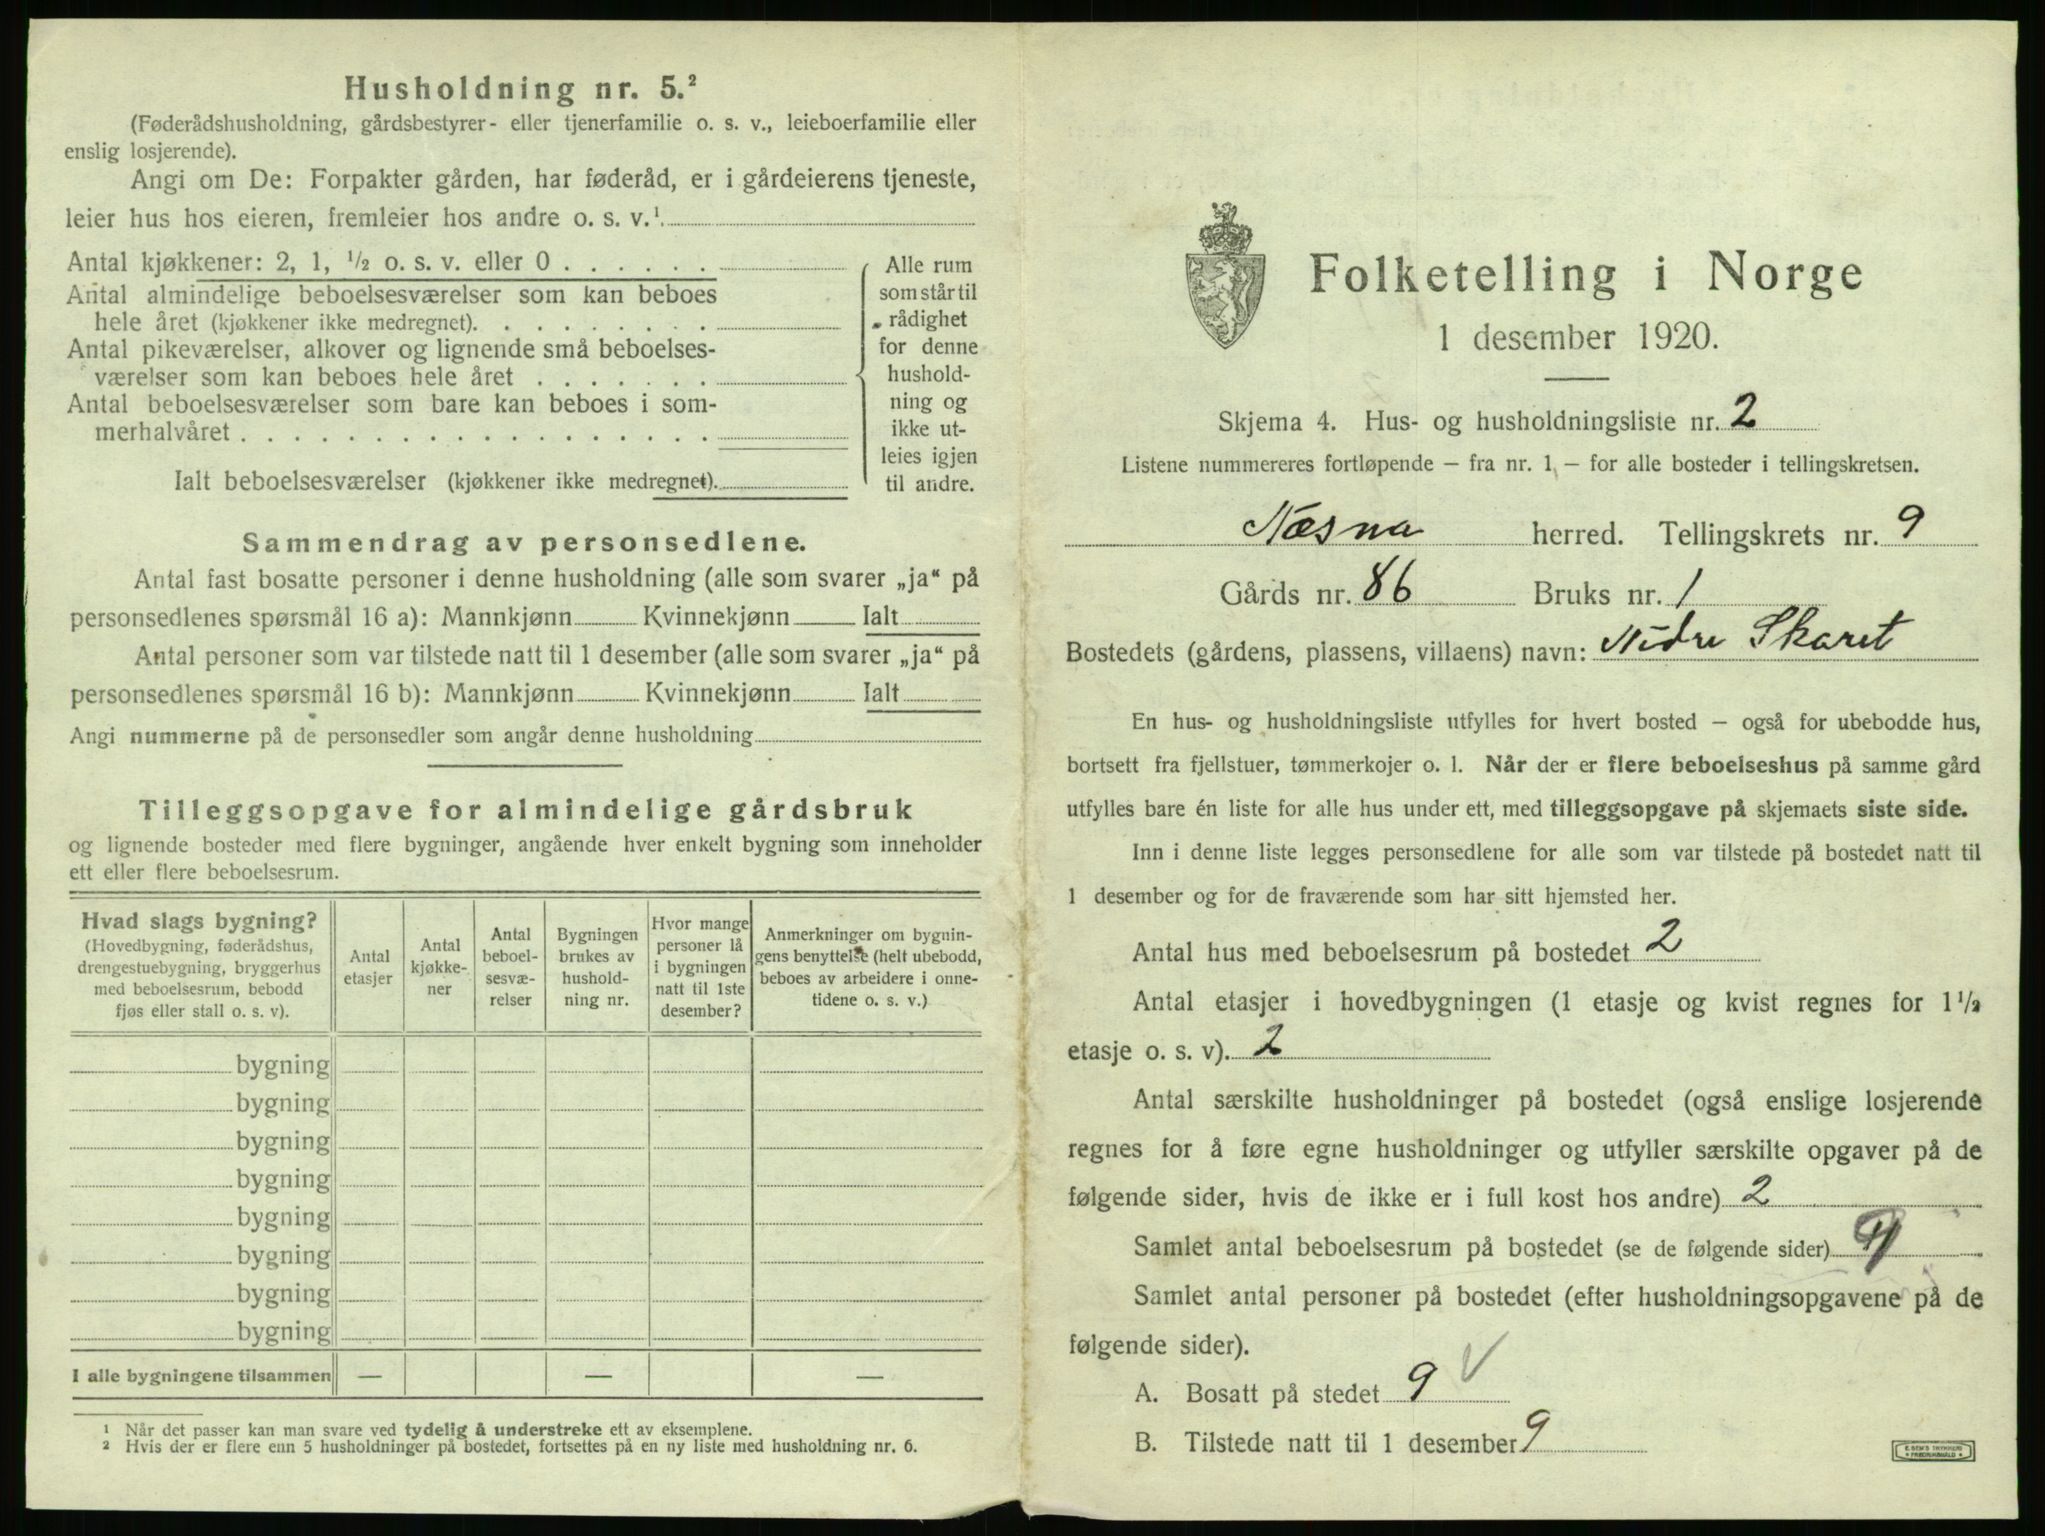 Husholdning nr. 5.²
(Føderådshusholdning, gårdsbestyrer- eller tjenerfamilie o. s. v., leieboerfamilie eller
enslig losjerende).
Angi om De: Forpakter gården, har føderåd, er i gårdeierens tjeneste,
leier hus hos eieren, fremleier hos andre o. s. v.¹
Antal kjøkkener: 2, 1, ½ o. s. v. eller 0 . . . . . .
Antal almindelige beboelsesværelser som kan beboes
hele året (kjøkkener ikke medregnet). . . . . . . . .
Antal pikeværelser, alkover og lignende små beboelses-
værelser som kan beboes hele året . . . . . . .
Antal beboelsesværelser som bare kan beboes i som-
merhalvåret . . . . . . . . . . . . . . . . . .
Ialt beboelsesværelser (kjøkkener ikke medregnet).
Alle rum
som står til
rådighet
for denne
hushold-
ning og
ikke ut-
leies igjen
til andre.
Sammendrag av personsedlene.
Antal fast bosatte personer i denne husholdning (alle som svarer „ja“ på
personsedlenes spørsmål 16 a): Mannkjønn Kvinnekjønn Ialt
Antal personer som var tilstede natt til 1 desember (alle som svarer „ja“ på
personsedlenes spørsmål 16 b): Mannkjønn Kvinnekjønn Ialt
Angi nummerne på de personsedler som angår denne husholdning
Tilleggsopgave for almindelige gårdsbruk
og lignende bosteder med flere bygninger, angående hver enkelt bygning som inneholder
ett eller flere beboelsesrum.
Hvad slags bygning?
(Hovedbygning, føderådshus,
drengestuebygning, bryggerhus
med beboelsesrum, bebodd
fjøs eller stall o. s. v).
Antal
etasjer
Antal
kjøkke-
ner
Antal
beboel-
sesvæ-
relser
Bygningen
brukes av
hushold-
ning nr.
Hvor mange
personer lå
i bygningen
natt til 1ste
desember?
Anmerkninger om bygnin-
gens benyttelse (helt ubebodd,
beboes av arbeidere i onne-
tidene o. s. v.)
bygning
bygning
bygning
bygning
bygning
bygning
bygning
bygning
I alle bygningene tilsammen — — —
¹ Når det passer kan man svare ved tydelig å understreke ett av eksemplene.
² Hvis der er flere enn 5 husholdninger på bostedet, fortsettes på en ny liste med husholdning nr. 6.
Folketelling i Norge
1 desember 1920.
Skjema 4. Hus- og husholdningsliste nr. 2
Listene nummereres fortløpende – fra nr. 1 – for alle bosteder i tellingskretsen.
Næsna herred. Tellingskrets nr. 9
Gårds nr. 86 Bruks nr. 1
Bostedets (gårdens, plassens, villaens) navn: Nedre Skaret
En hus- og husholdningsliste utfylles for hvert bosted – også for ubebodde hus,
bortsett fra fjellstuer, tømmerkojer o. l. Når der er flere beboelseshus på samme gård
utfylles bare én liste for alle hus under ett, med tilleggsopgave på skjemaets siste side.
Inn i denne liste legges personsedlene for alle som var tilstede på bostedet natt til
1 desember og for de fraværende som har sitt hjemsted her.
Antal hus med beboelsesrum på bostedet 2
Antal etasjer i hovedbygningen (1 etasje og kvist regnes for 1½
etasje o. s. v). 2
Antal særskilte husholdninger på bostedet (også enslige losjerende
regnes for å føre egne husholdninger og utfyller særskilte opgaver på de
følgende sider, hvis de ikke er i full kost hos andre) 2
Samlet antal beboelsesrum på bostedet (se de følgende sider)
Samlet antal personer på bostedet (efter husholdningsopgavene på de
følgende sider).
A. Bosatt på stedet 9
B. Tilstede natt til 1 desember 9